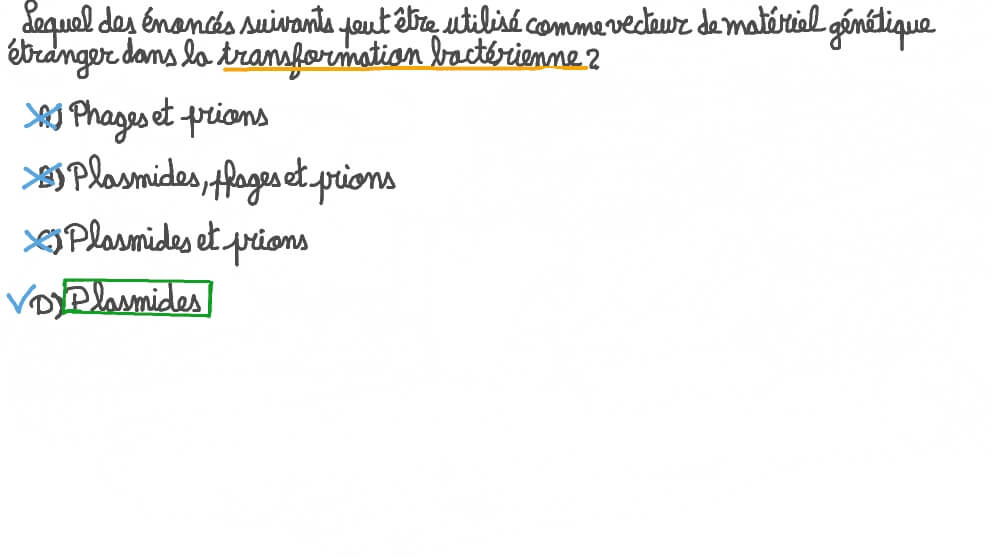 Lequel des énoncés suivants peut être utilisé comme vecteur de matériel génétique
étranger dans la transformation bactérienne ?
A) Phages et prions
B) Plasmides, phages et prions
C) Plasmides et prions
D) Plasmides